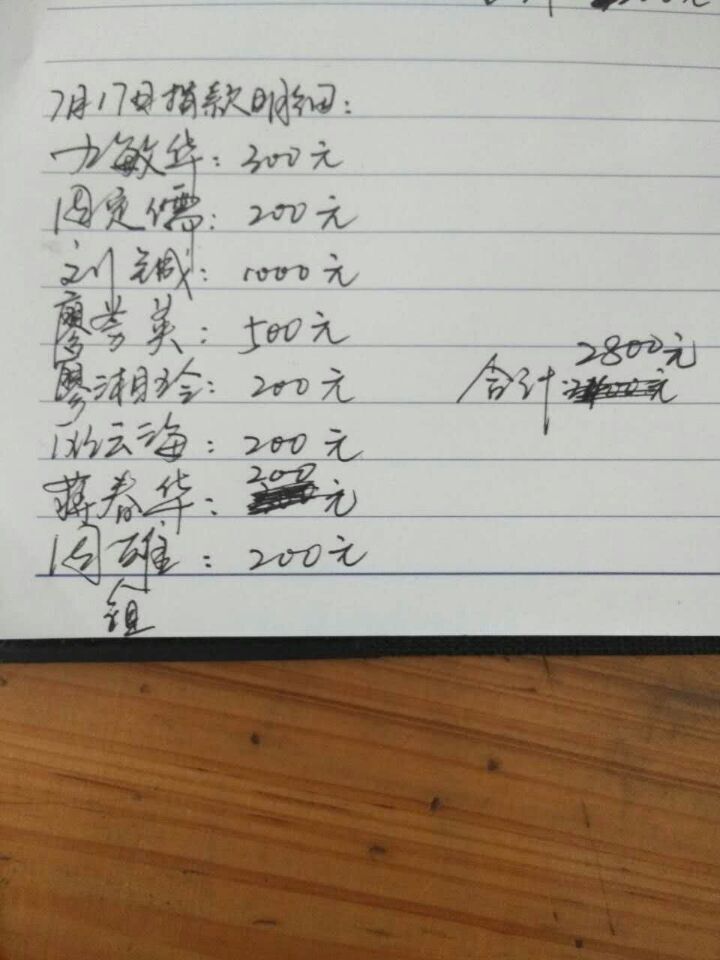 合计
00元
7月17日捐款明细:
方敏华:300元
周定儒:200元
刘铖:1000元
廖芳英:500元
廖湘玲:200元
云海:200元
蒋春华:200元
周雄:200元
合计 2800元